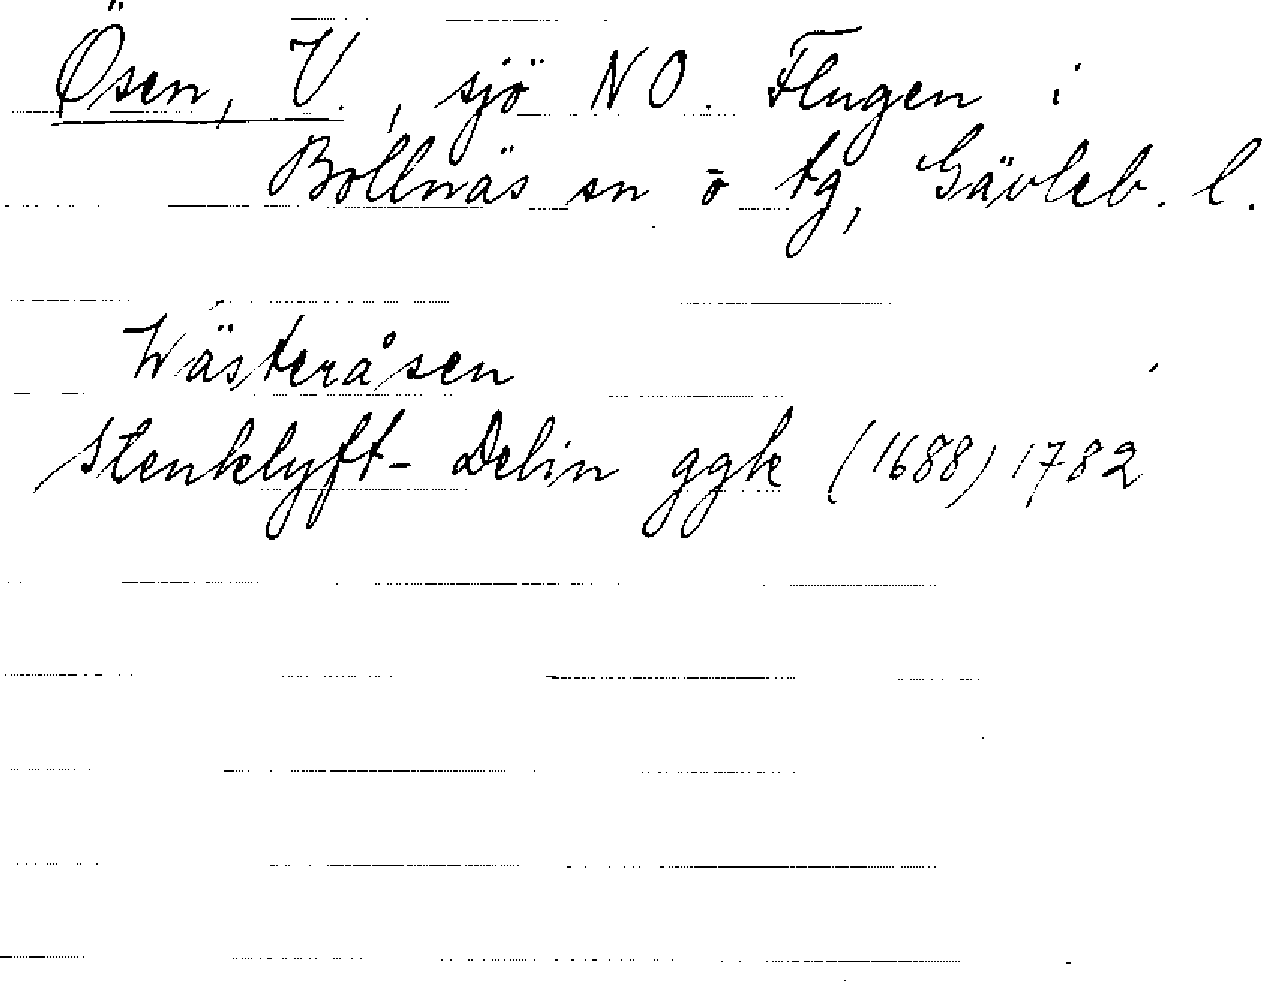 Ösen, V., sjö NO. Flugen i
Bollnäs sn o tg, Gävleb. l.
Wästeråsen
Stenklyft- Delin ggk (1688) 1782